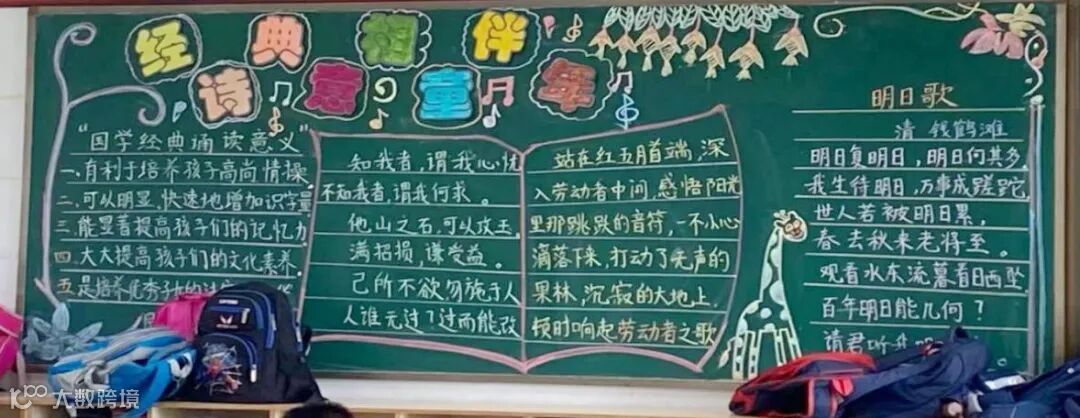 经典相伴
诗意童年
"国学经典诵读意义"
一.有利于培养孩子高尚情操.
二.可以明显、快速地增加识字量
三.能显著提高孩子们的记忆力
四.大大提高孩子们的文化素养.
五.是培养优秀
知我者,谓我心忧
不知我者,谓我何求。
他山之石,可以攻玉。
满招损,谦受益。
己所不欲勿施于人
人谁无过?过而能改
站在红五月首端,深
入劳动者中间,感悟阳光
里那跳跃的音符,一不小心
滴落下来,打动了无声的
果林,沉寂的大地上
顿时响起劳动者之歌
明日歌
清 钱鹤滩
明日复明日,明日何其多.
我生待明日,万事成蹉跎.
世人若被明日累,
春去秋来老将至。
朝看水东流暮看日西坠
百年明日能几何?
请君听我明
大数跨境